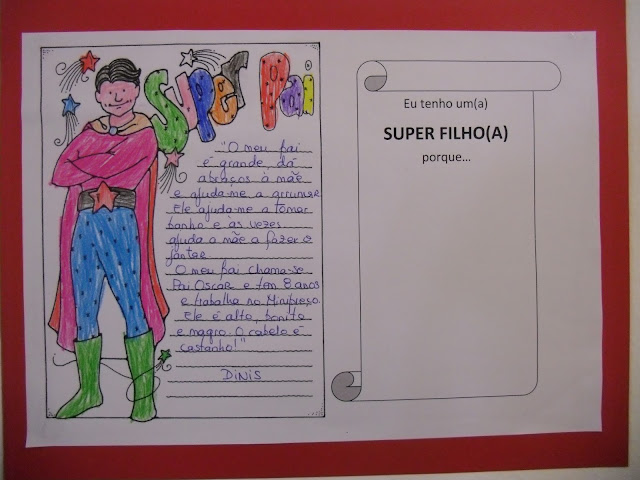 SUPER Pai
"O meu pai
é grande, dá
abraços à mãe
e ajuda-me a arrumar
Ele ajuda-me a tomar
banho e às vezes
ajuda a mãe a fazer o
jantar
O meu pai chama-se
Pai Oscar e tem 8 anos
e trabalha no Minipreço.
Ele é alto, bonito
e magro. O cabelo é
castanho!"
DINIS
Eu tenho um(a)
SUPER FILHO(A)
porque...